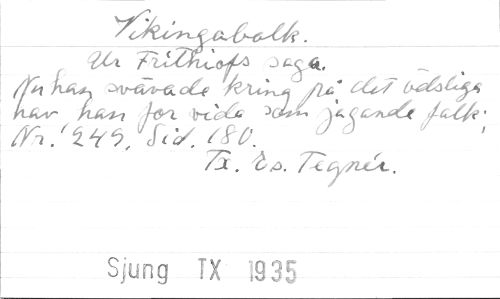 Vikingabalk.
Ur Frithiofs saga.
Nu han svävade kring på det ödsliga
hav, han for vida som jagande falk;
Nr. 249, Sid. 180.
Tx. Es. Tegnér.
Sjung TX 1935